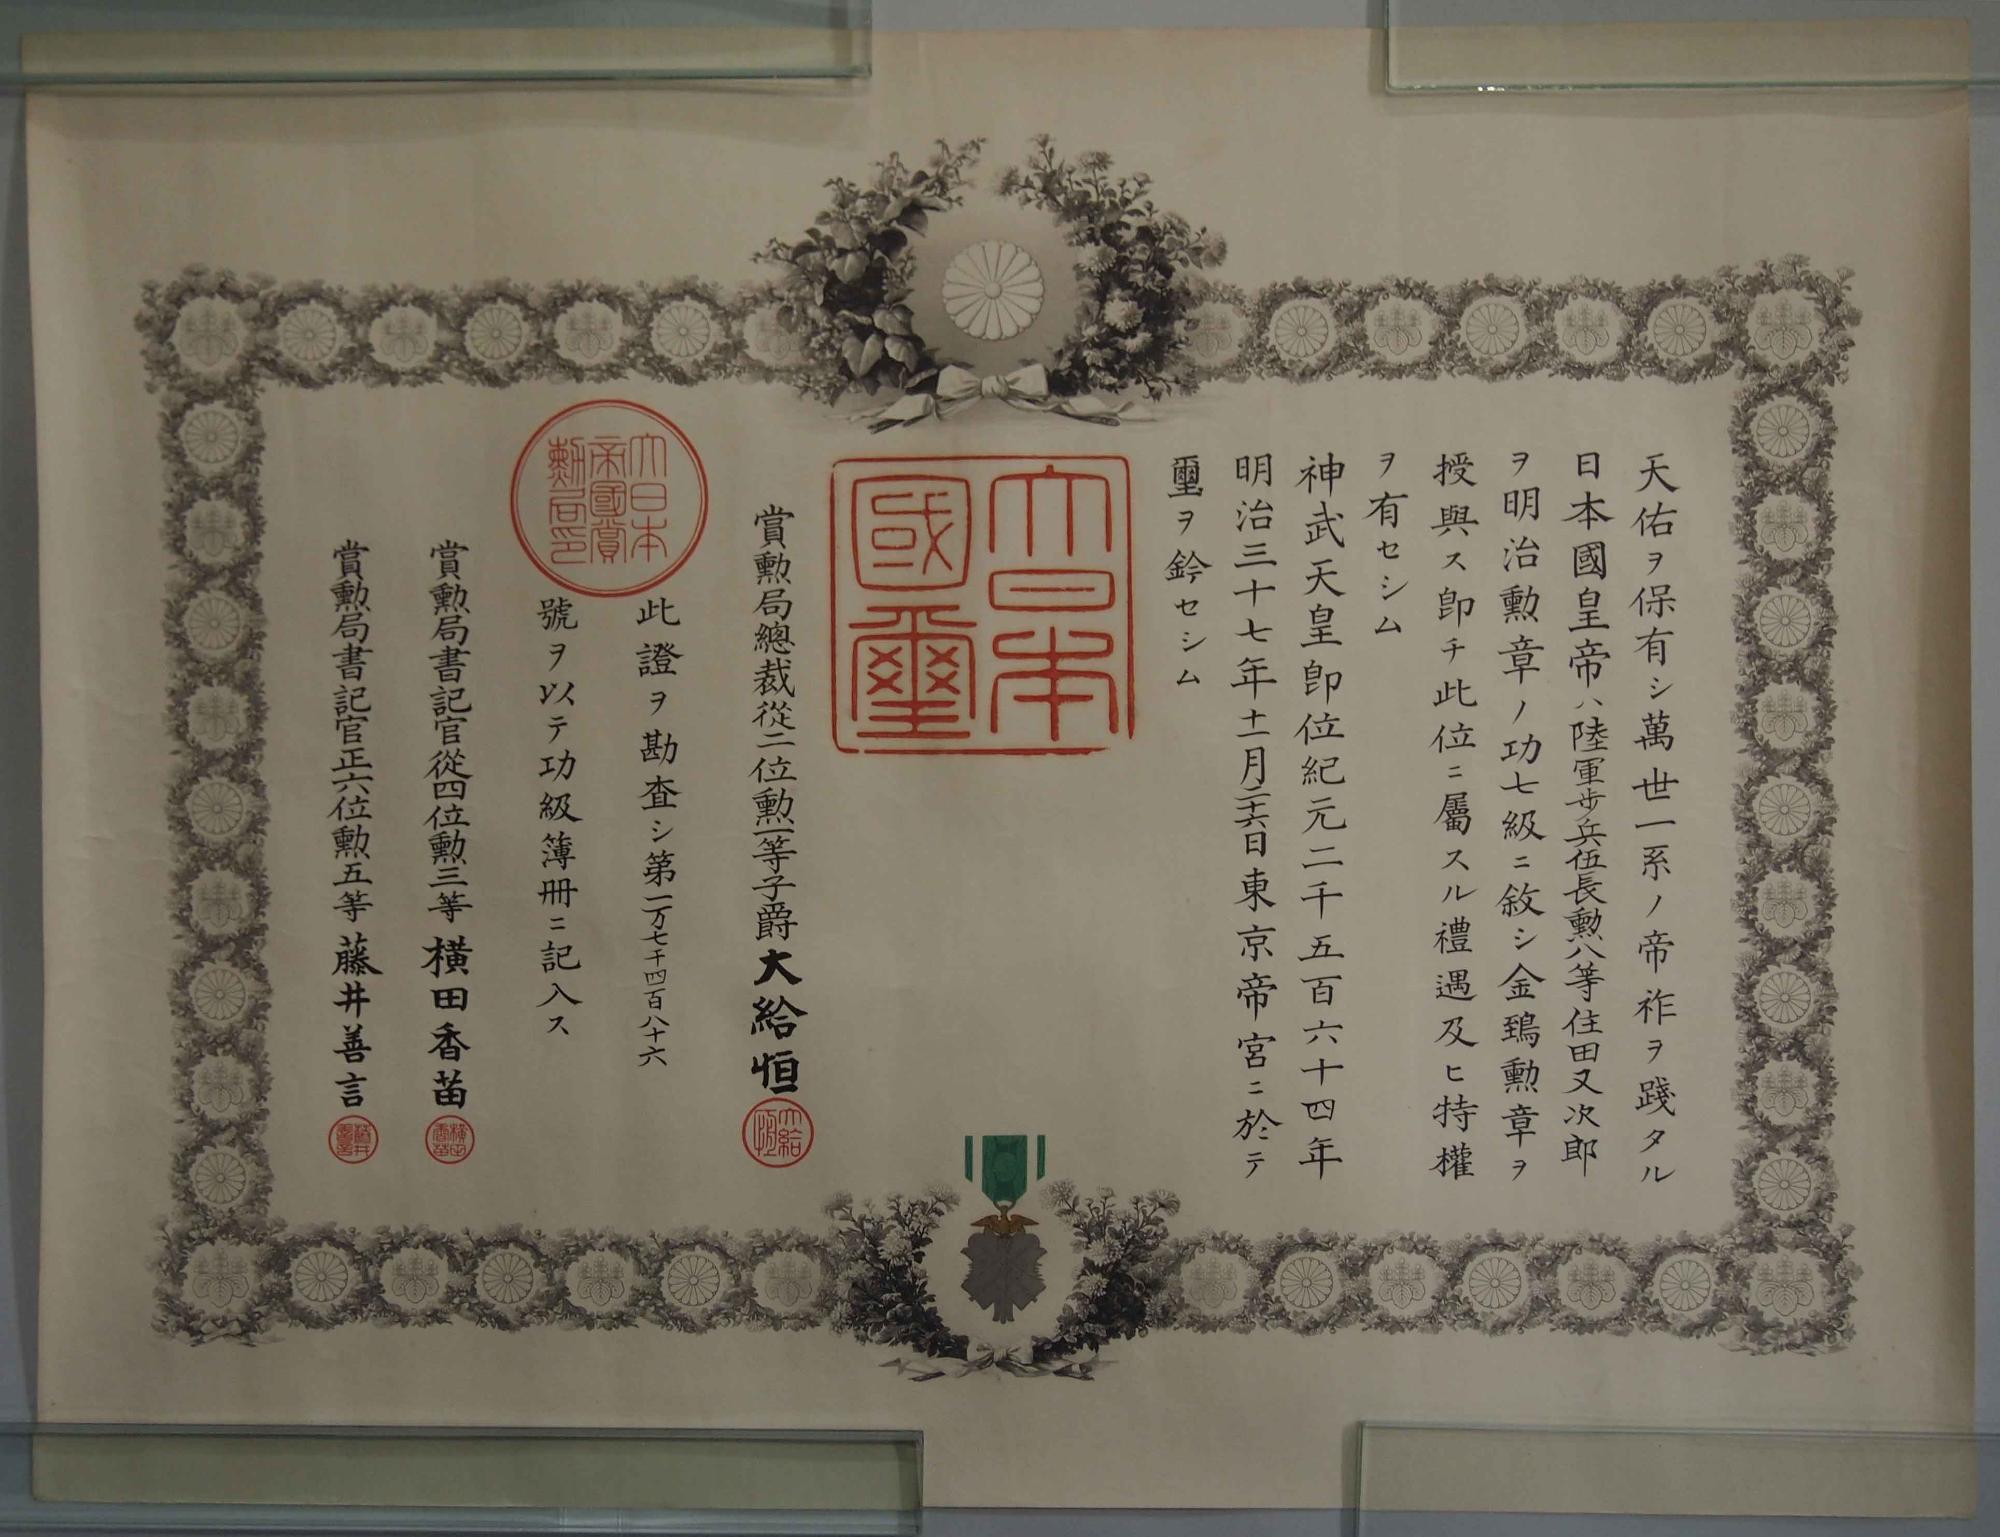 天佑ヲ保有シ萬世一系ノ帝祚ヲ踐タル
日本國皇帝ハ陸軍歩兵伍長勲八等住田又次郎
ヲ明治勲章ノ功七級ニ敘シ金鵄勲章ヲ
授與ス卽チ此位ニ屬スル禮遇及ヒ特權
ヲ有セシム
神武天皇卽位紀元二千五百六十四年
明治三十七年十一月二十六日東京帝宮ニ於テ
璽ヲ鈐セシム
大日本
國璽
賞勲局總裁從二位勲一等子爵大給恒
大給
此證ヲ勘査シ第一万七千四百八十六
號ヲ以テ功級簿冊ニ記入ス
大日本
帝國賞
勲局印
賞勲局書記官從四位勲三等横田香苗
横田
香苗
賞勲局書記官正六位勲五等藤井善言
藤井
善言